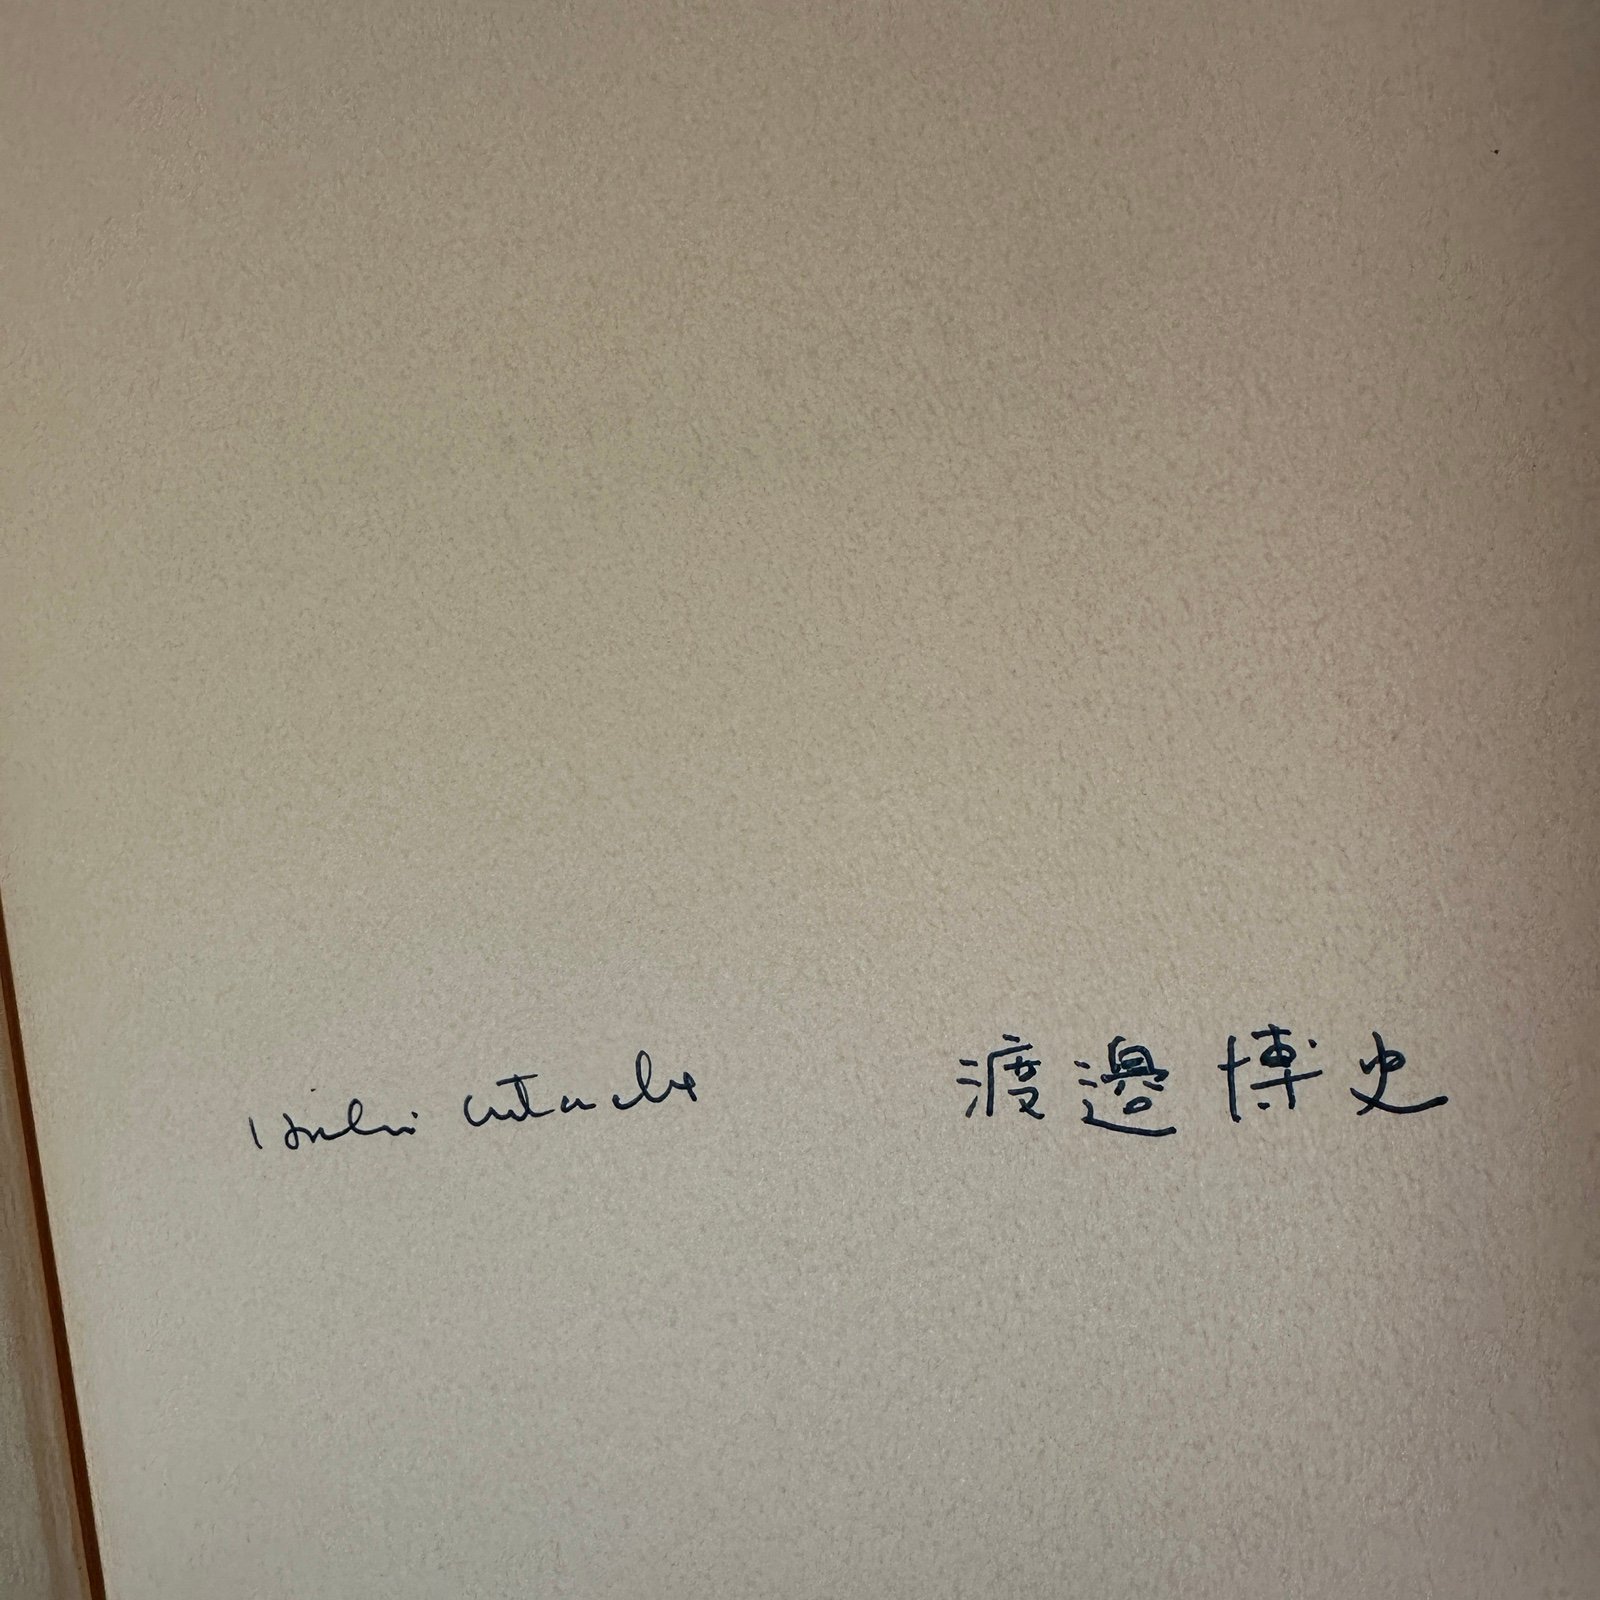 Hiroshi Watanabe 渡邉博史